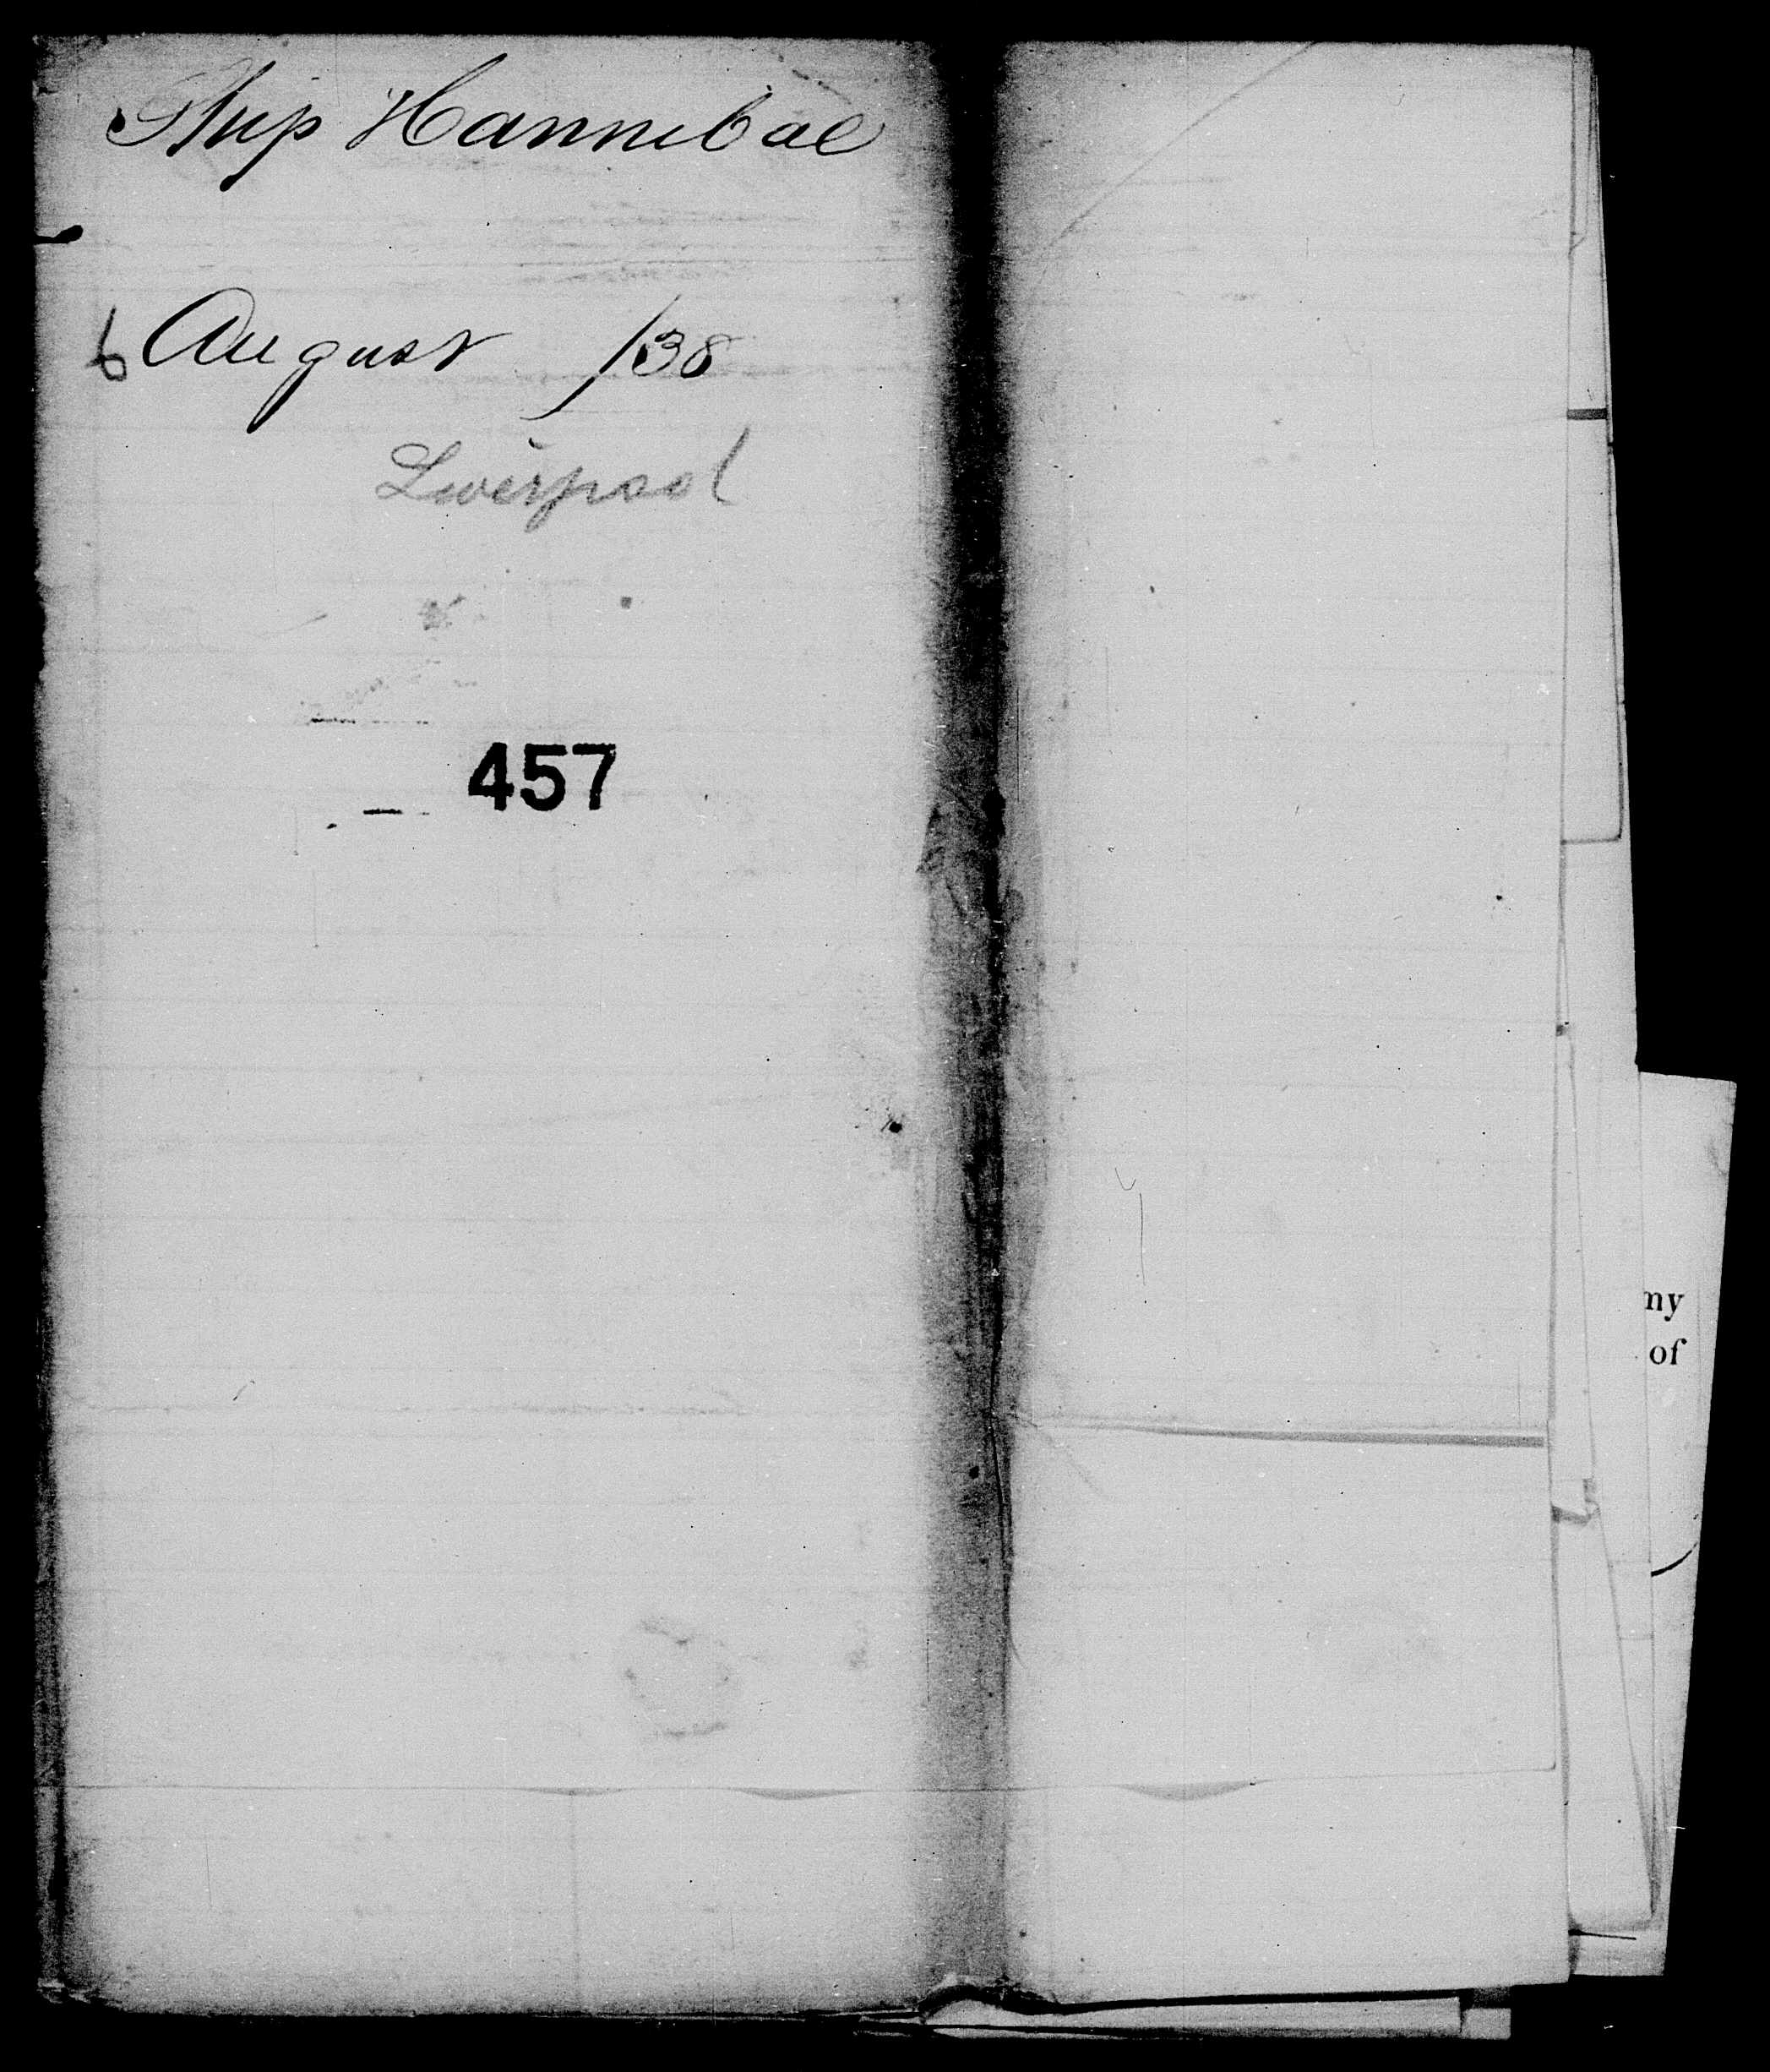 Ship Hannibal
6 August /38
Liverpool
457
my
of